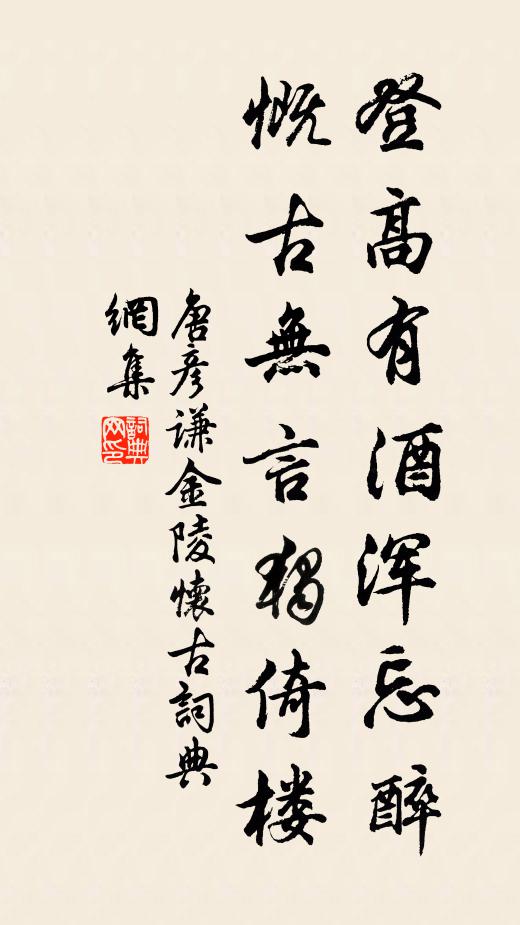 登高有酒浑忘醉
慨古無言独倚楼
唐彦谦金陵懷古詞典
網集
詞典
网印